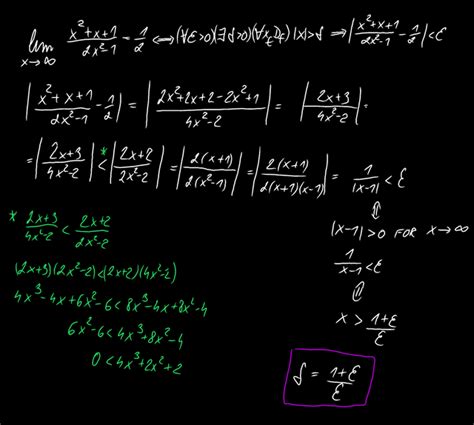 lim x→∞ (x²+x+1)/(2x²-1) = 1/2 ⟺ (∀ε>0)(∃δ>0)(∀x∈D_f) |x|>δ ⟹ |(x²+x+1)/(2x²-1) - 1/2| < ε
|(x²+x+1)/(2x²-1) - 1/2| = |(2x²+2x+2-2x²+1)/(4x²-2)| = |(2x+3)/(4x²-2)| =
= |(2x+3)/(4x²-2)| <* |(2x+2)/(2x²-2)| = |2(x+1)/2(x²-1)| = |2(x+1)/2(x+1)(x-1)| = 1/|x-1| < ε
* (2x+3)/(4x²-2) < (2x+2)/(2x²-2)
(2x+3)(2x²-2)<(2x+2)(4x²-2)
4x³-4x+6x²-6<8x³-4x+8x²-4
6x²-6<4x³+8x²-4
0<4x³+2x²+2
⇕
|x-1|>0 FOR x→∞
1/(x-1) < ε
⇕
x > (1+ε)/ε
δ = (1+ε)/ε